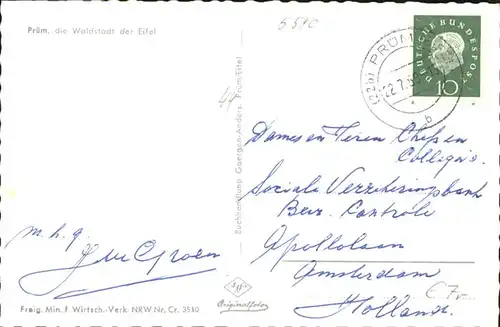 Prüm, die Waldstadt der Eifel
5590
DEUTSCHE BUNDESPOST
10
(22b) PRÜM
22.7.
b
44
Buchhandlung Goergen-Anders, Prüm/Eifel
Dames en Heren Chefs en
Collega's
Sociale Verzekeringsbank
Bur. Controle
Apollolaan
Amsterdam
Holland
m.h.g.
Originalfoto
Freig. Min. f. Wirtsch.-Verk. NRW Nr. Cr. 3580